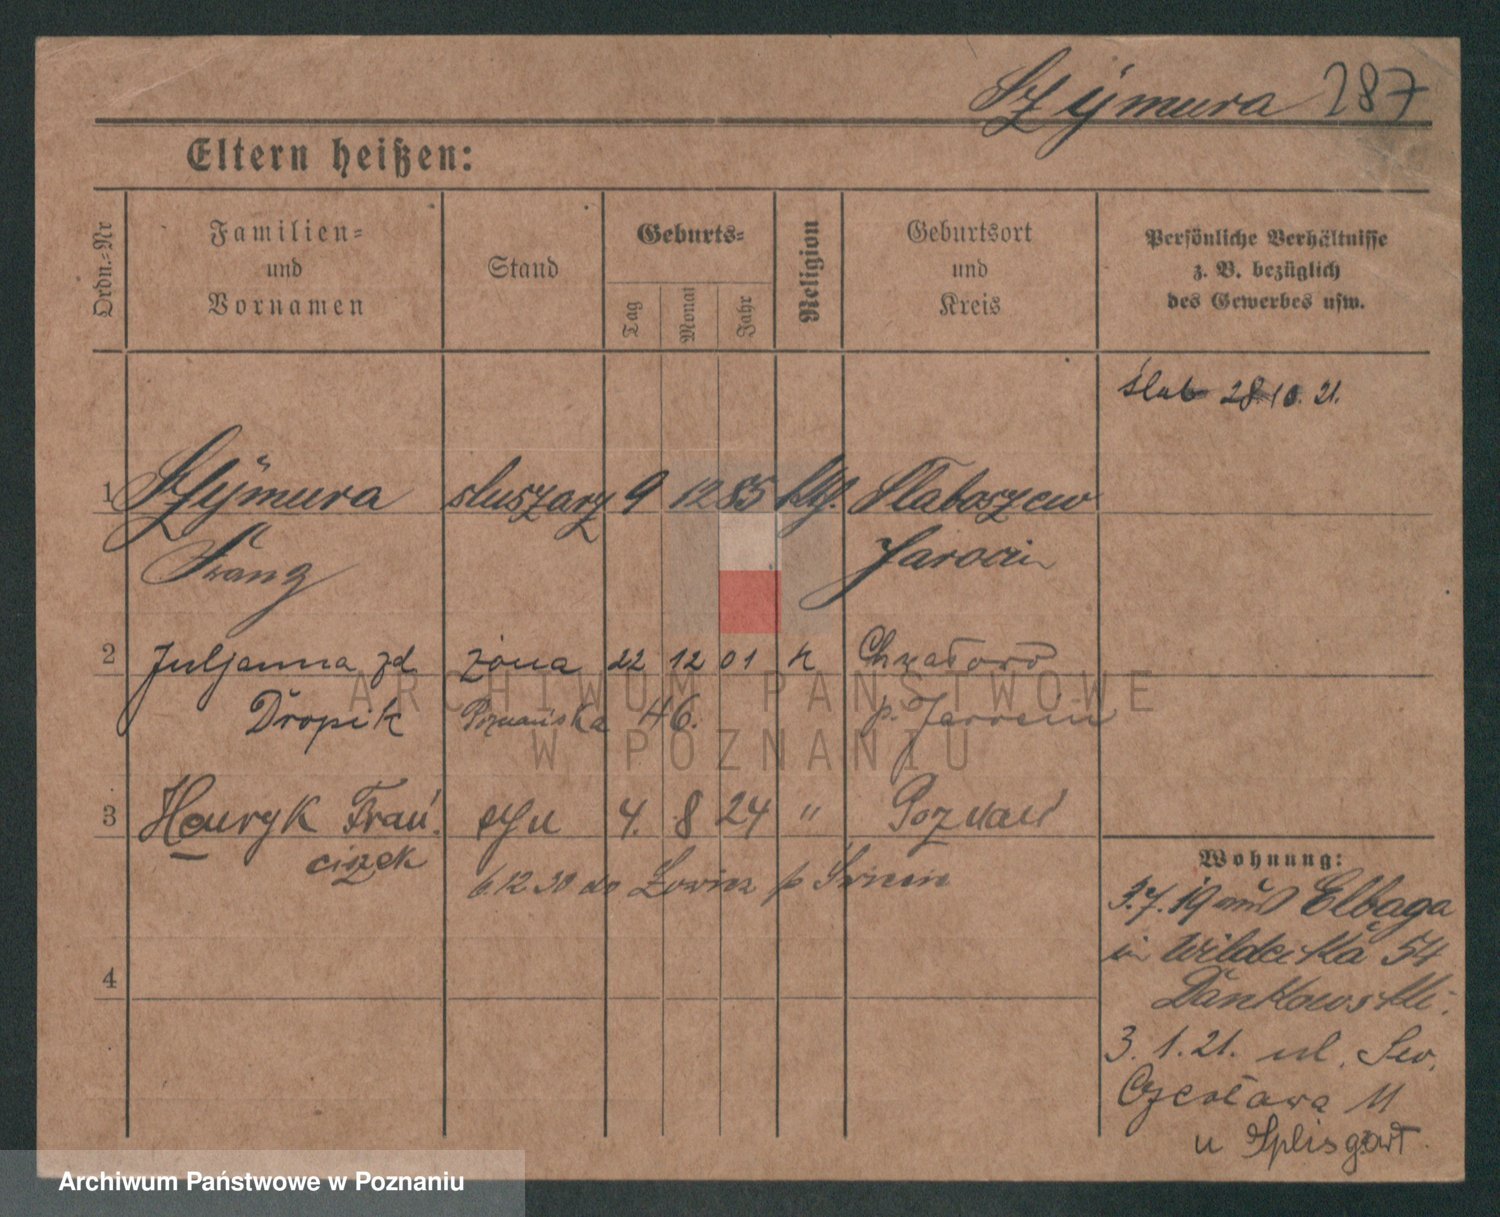 Szÿmura 287
Eltern heißen:
Ordn.-Nr
Familien-
und
Vornamen
Stand
Geburts-
Tag
Monat
Jahr
Religion
Geburtsort
und
Kreis
Persönliche Verhältnisse
z. B. bezüglich
des Gewerbes usw.
ślub 28.10.21.
1 Szÿmura sluszarz 9 12 85 ktl. Slaboszew
Franz Jarocin
2 Juljanna zd żona 22 12 01 k
Dropik Poznańska 46. p. Jarocin
3 Henryk Fran. syn 4. 8 24 " Poznań
ciszek
Wohnung:
3.7.19 aus Elbaga
in Wildecka 54
Dankowski.
3. 1. 21. ul. Św.
Czesława 11
u Splisgart
4
ARCHIWUM PAŃSTWOWE
W POZNANIU
Archiwum Państwowe w Poznaniu